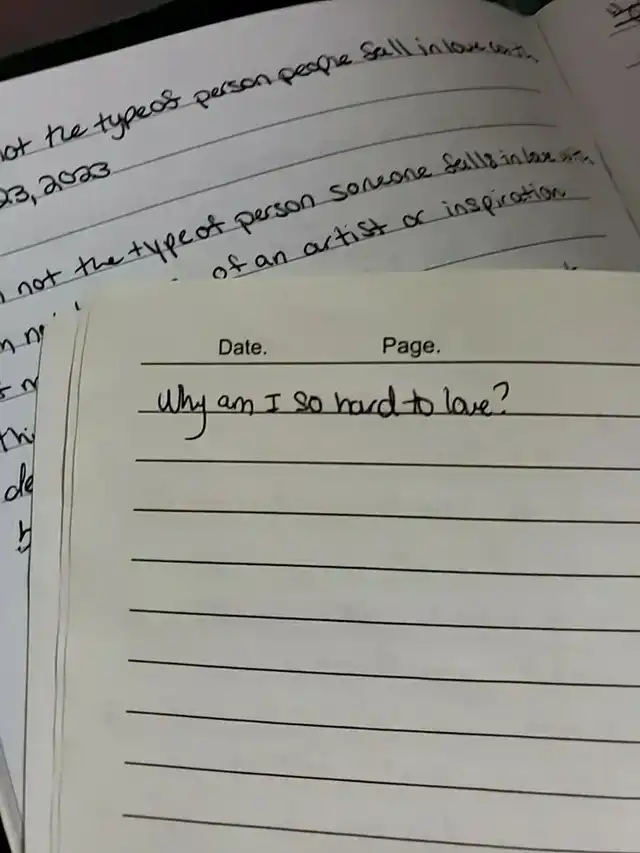 not the type of person people fall in love with
23, 2023
not the type of person someone falls in love with
of an artist or inspiration
thi
de
Date. Page.
Why am I so hard to love?